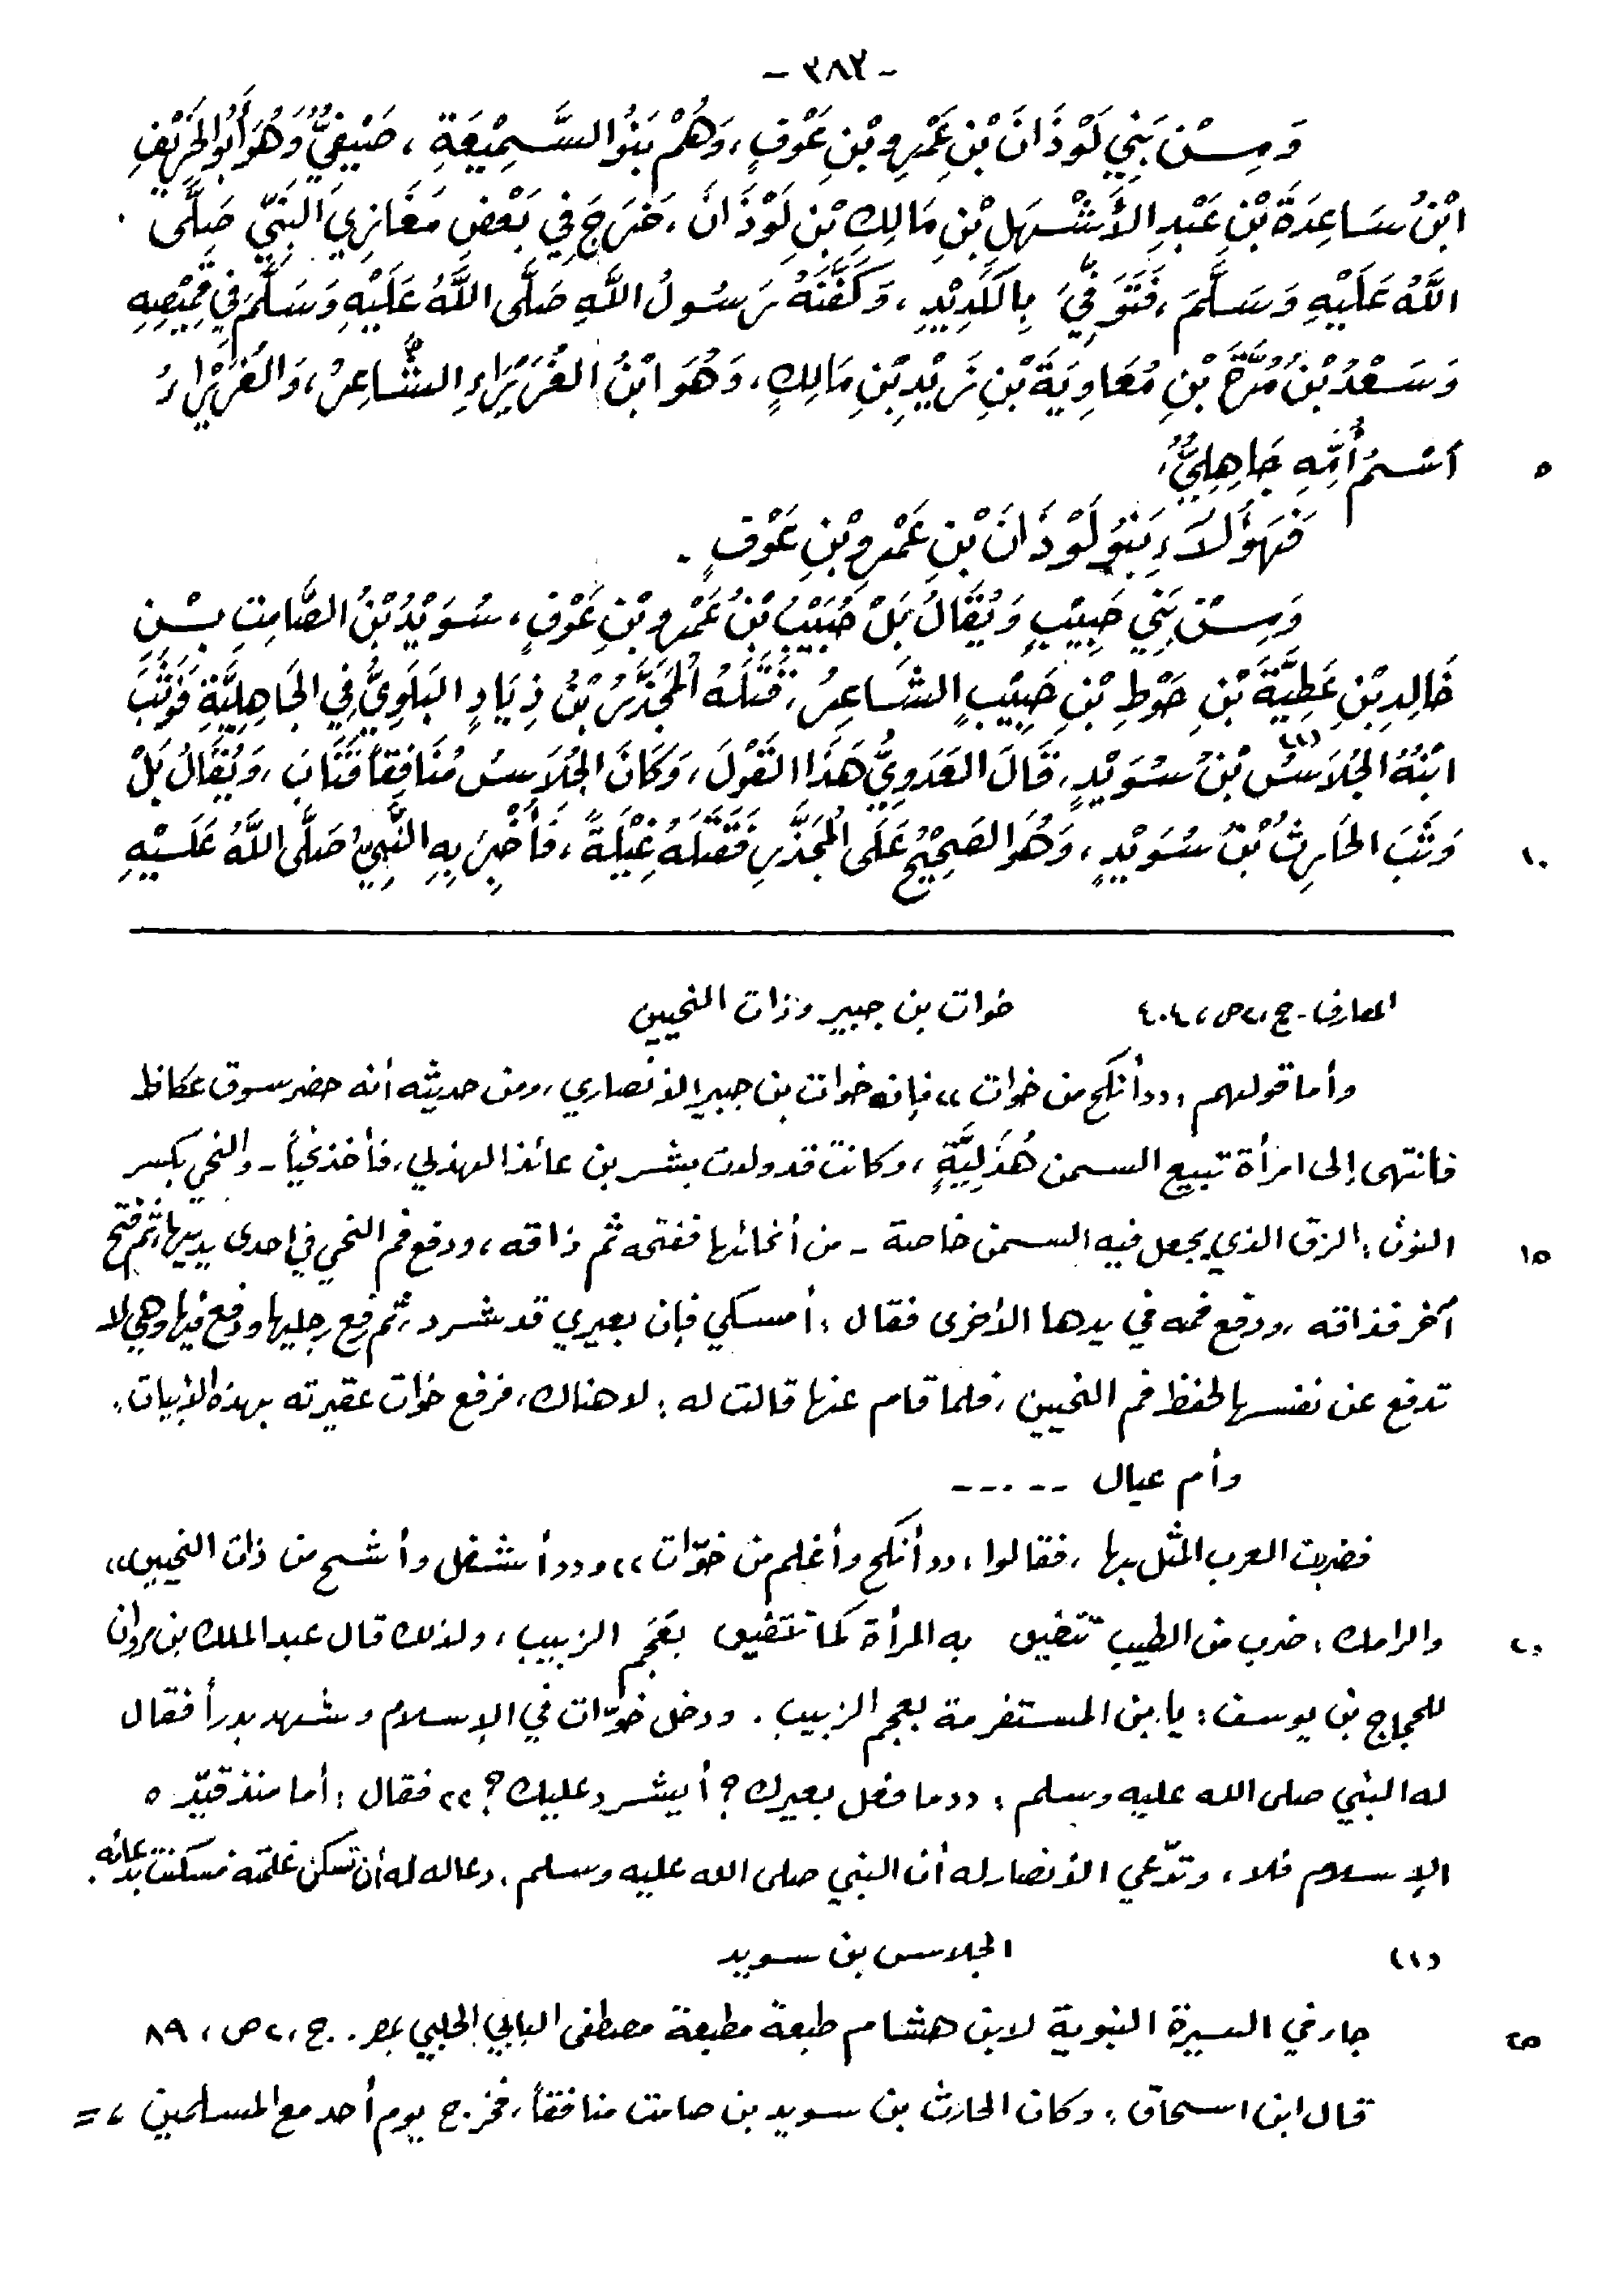 - ٣٨٢ -
وَمِنْ بَنِي لَوْذَانَ بْنِ عَمْرِو بْنِ عَوْفٍ، وَهُمْ بَنُو السَّمِيْعَةِ، صَيْفِيٌّ وَهُوَ أَبُو الخَرِيْفِ
ابْنُ سَاعِدَةَ بْنِ عَبْدِ الأَشْهَلِ بْنِ مَالِكِ بْنِ لَوْذَانَ، خَرَجَ فِي بَعْضِ مَغَازِي النَّبِيِّ صَلَّى
اللَّهُ عَلَيْهِ وَسَلَّمَ، فَتُوُفِّيَ بِالكَدِيْدِ، وَكَفَّنَهُ رَسُولُ اللَّهِ صَلَّى اللَّهُ عَلَيْهِ وَسَلَّمَ فِي قَمِيْصِهِ
وَسَعْدُ بْنُ مُرَّحِ بْنِ مُعَاوِيَةَ بْنِ زَيْدِ بْنِ مَالِكٍ، وَهُوَ ابْنُ الغُرَيْرَاءِ الشَّاعِرُ، وَالغُرَيْرَاءُ
٥ اسْمُ أُمِّهِ جَاهِلِيٌّ،
فَهَؤُلَاءِ بَنُو لَوْذَانَ بْنِ عَمْرِو بْنِ عَوْفٍ.
وَمِنْ بَنِي حَبِيْبٍ وَيُقَالُ بَلْ حُبَيِّبُ بْنُ عَمْرِو بْنِ عَوْفٍ، سُوَيْدُ بْنُ الصَّامِتِ بْنِ
خَالِدِ بْنِ عَطِيَّةَ بْنِ حَوْطِ بْنِ حَبِيْبٍ الشَّاعِرُ، قَتَلَهُ المُجَذَّرُ بْنُ ذِيَادٍ البَلَوِيُّ فِي الجَاهِلِيَّةِ فَوَثَبَ
ابْنُهُ الجُلَاسُ (١) بْنُ سُوَيْدٍ، قَالَ العَدَوِيُّ هَذَا القَوْلَ، وَكَانَ الجُلَاسُ مُنَافِقاً فَتَابَ، وَيُقَالُ بَلْ
١٠ وَثَبَ الحَارِثُ بْنُ سُوَيْدٍ، وَهُوَ الصَحِيْحُ عَلَى المُجَذَّرِ فَقَتَلَهُ غِيْلَةً، فَأُخْبِرَ بِهِ النَّبِيُّ صَلَّى اللَّهُ عَلَيْهِ
المعارف - ج، ٢ ص، ٤٠٤ خوات بن جبير وذات النحيين
وأما قولهم: ((أنكح من خوات)) فإنه خوات بن جبير الأنصاري، ومن حديثه أنه حضر سوق عكاظ
فانتهى إلى امرأة تبيع السمن هُذَلِيَّةٍ، وكانت قد ولدت بشر بن عائذ الهذلي، فأخذ نحياً - والنحي بكسر
١٥ النون: الزق الذي يجعل فيه السمن خاصة - من أنحائها ففتحه ثم ذاقه، ودفع فم النحي في احدى يديها، ثم فتح
آخر فذاقه، ودفع فمه في يدها الأخرى فقال: أمسكي فإن بعيري قد شرد، ثم رفع رجليها ودفع فيها وهي لا
تدفع عن نفسها لحفظ فم النحيين، فلما قام عنها قالت له: لا هناك، فرفع خوات عقيرته بهذه الأبيات:
وأم عيال -----
فضربت العرب المثل بها، فقالوا، ((أنكح وأغلم من خوّات)) و((أشغل وأشح من ذات النحيين))
٢٠ والرامك: ضرب من الطيب تتضيق به المرأة كما تتضيق بعَجَم الزبيب، ولذلك قال عبد الملك بن مروان
للحجاج بن يوسف: يا بن المستفرمة بعجم الزبيب. ودخل خوّات في الإسلام وشهد بدراً فقال
له النبي صلى الله عليه وسلم: ((ما فعل بعيرك؟ أيشرد عليك؟)) فقال: أما منذ قيّده
الإسلام فلا، وتدّعي الأنصار له أن النبي صلى الله عليه وسلم. دعا له أن تسكن غلمته فسكنت بدعائه.
(١) الجلاس بن سويد
٢٥ جاء في السيرة النبوية لابن هشام طبعة مطبعة مصطفى البابي الحلبي بمصر. ج، ٢ ص، ٨٩
قال ابن اسحاق: وكان الحارث بن سويد بن صامت منافقاً، فخرج يوم أحد مع المسلمين، =